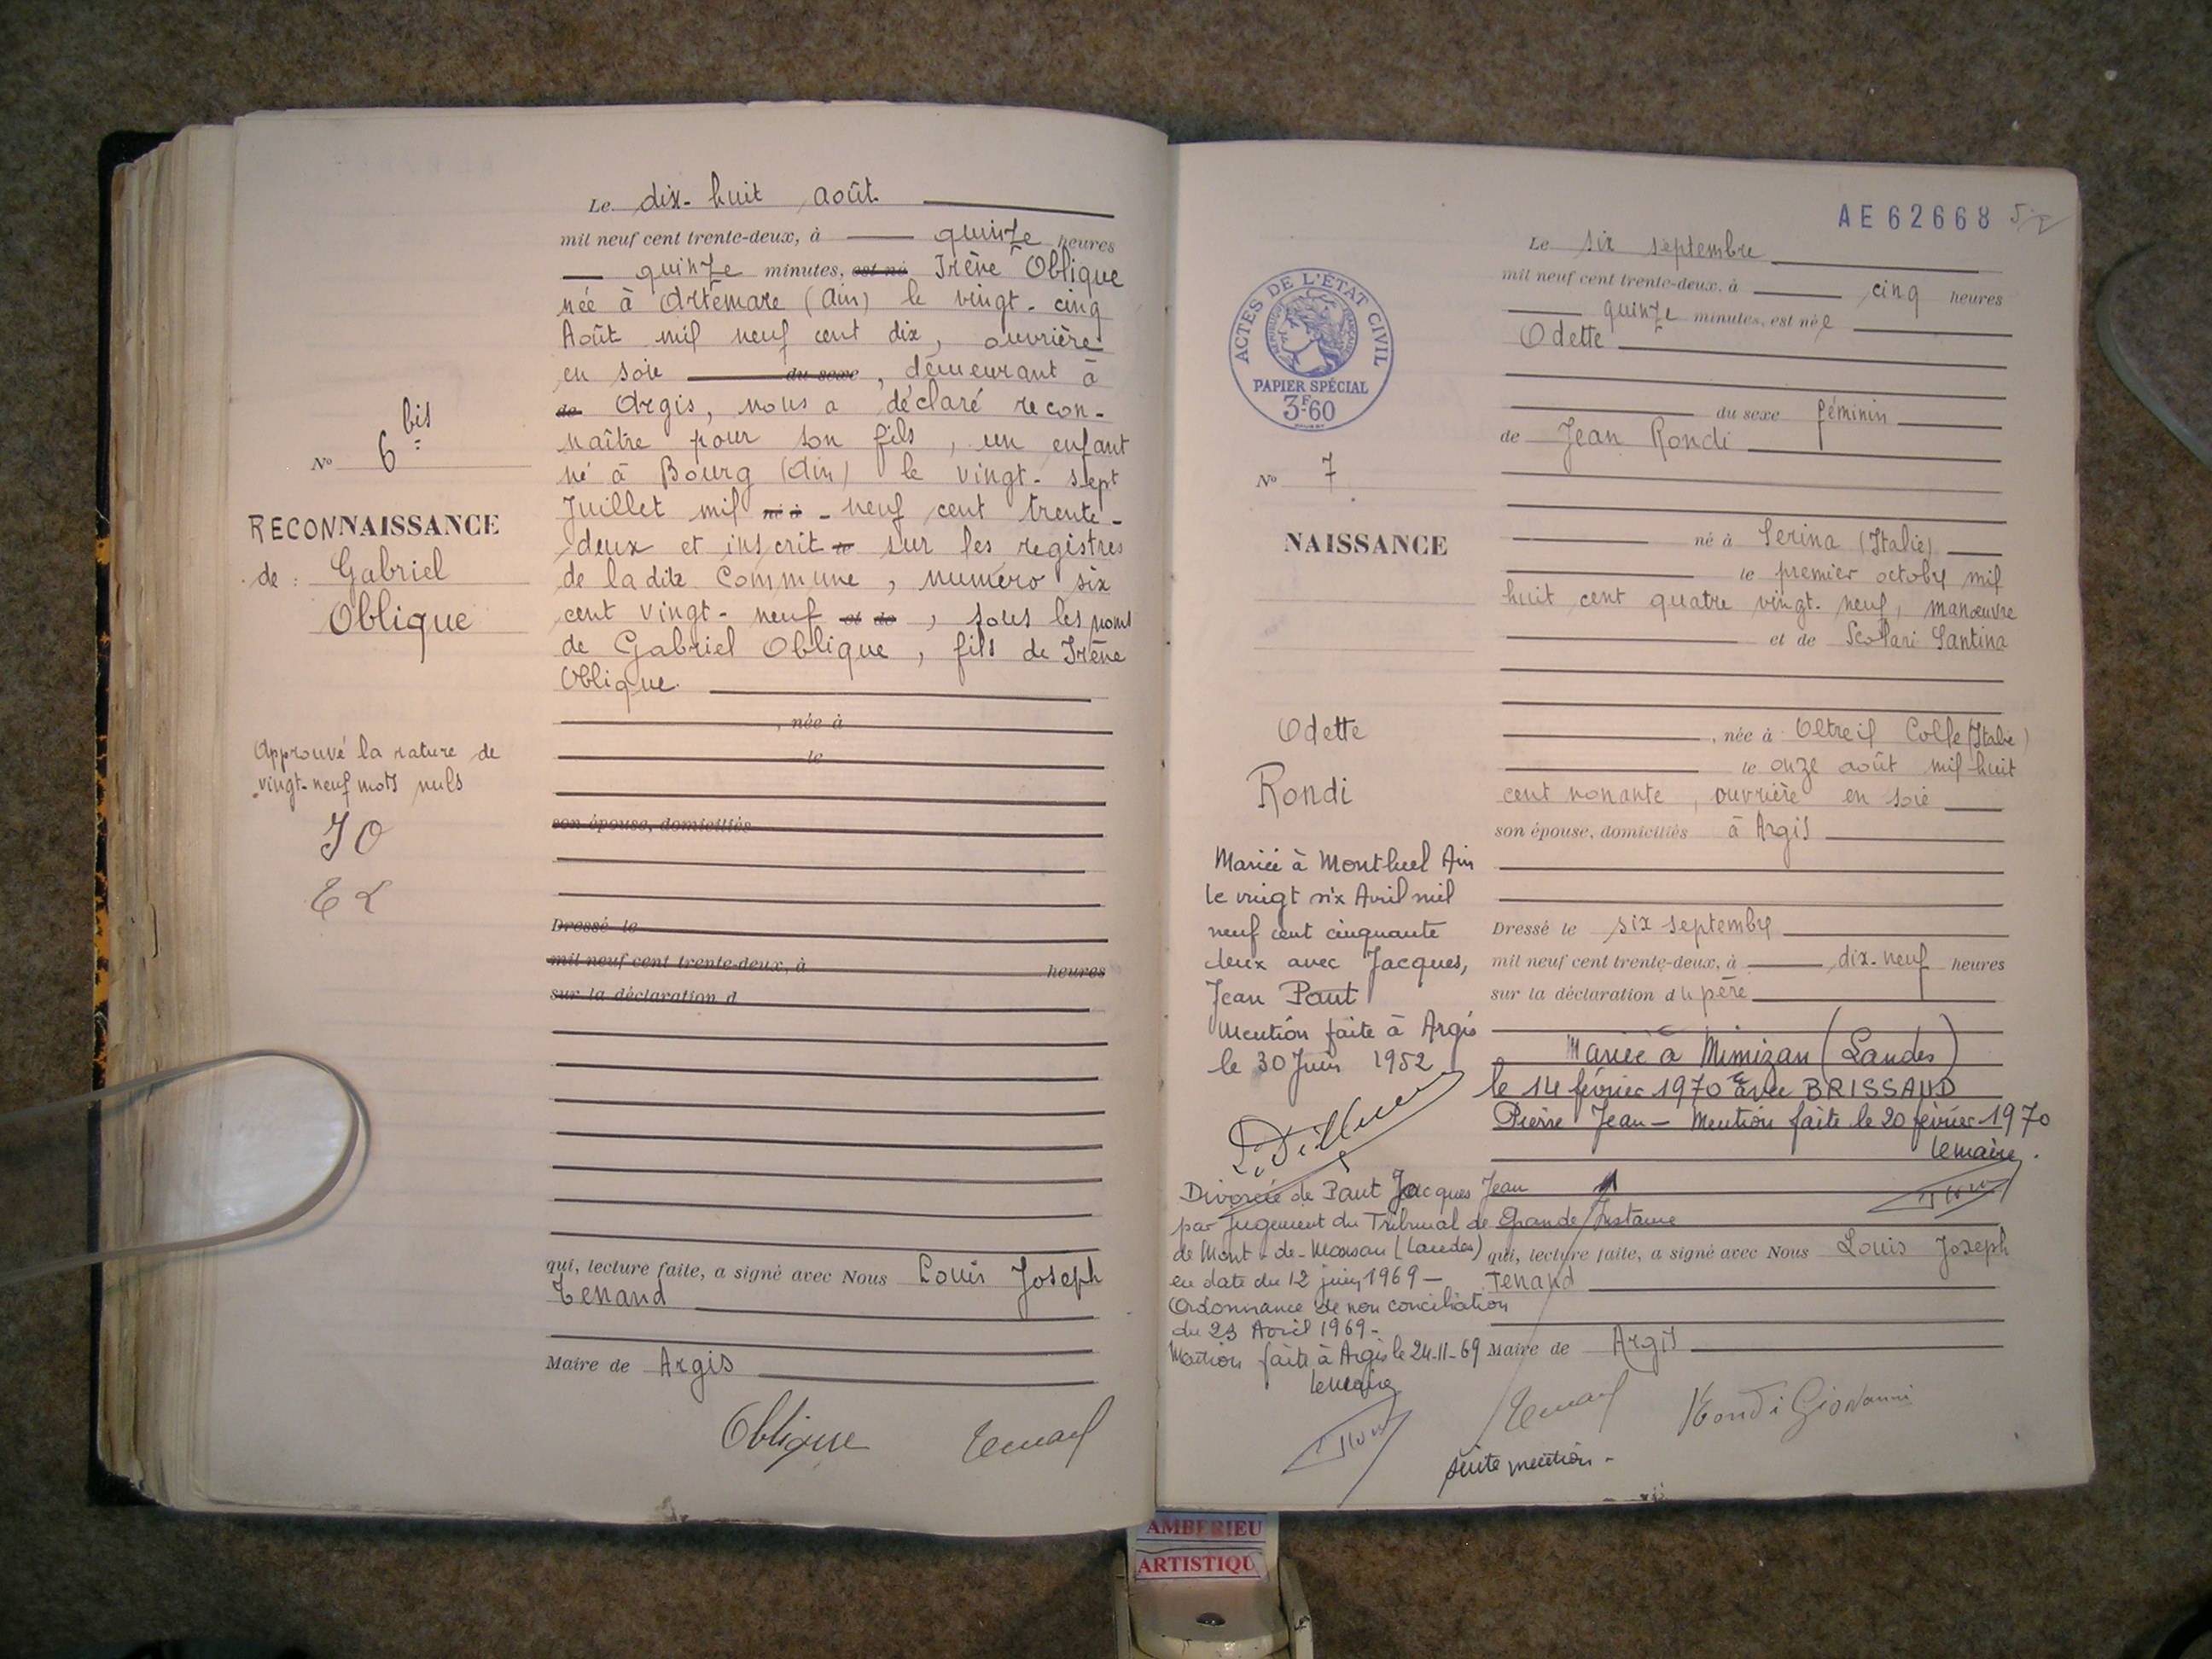 Le dix-huit août
mil neuf cent trente-deux, à quinze heures
quinze minutes, est né Irène Oblique
née à Artemare (Ain) le vingt-cinq
Août mil neuf cent dix, ouvrière
en soie du sexe, demeurant à
de Argis, nous a déclaré recon-
naître pour son fils, un enfant
né à Bourg (Ain) le vingt-sept
Juillet mil né à - neuf cent trente-
deux et inscrit le sur les registres
de la dite Commune, numéro six
cent vingt-neuf et de, sous les noms
de Gabriel Oblique, fils de Irène
Oblique.
, née à
le
son épouse, domiciliés
Dressé le
mil neuf cent trente-deux, à heures
sur la déclaration d
qui, lecture faite, a signé avec Nous Louis Joseph
Tenand
Maire de Argis
Oblique Tenand
No 6 bis
RECONNAISSANCE
de : Gabriel
Oblique
Approuvé la rature de
vingt-neuf mots nuls
IO
AE 62668
Le six septembre
mil neuf cent trente-deux, à cinq heures
quinze minutes, est née
Odette
du sexe féminin
de Jean Rondi
né à Serina (Italie)
le premier octobre mil
huit cent quatre vingt-neuf, manœuvre
et de Scolari Santina
, née à Oltreil Colle (Italie)
le onze août mil huit
cent nonante, ouvrière en soie
son épouse, domiciliés à Argis
Dressé le six septembre
mil neuf cent trente-deux, à dix-neuf heures
sur la déclaration du père
Mariée à Mimizan (Landes)
le 14 février 1970 avec BRISSAUD
Pierre Jean - Mention faite le 20 février 1970
le maire.
qui, lecture faite, a signé avec Nous Louis Joseph
Tenand
Maire de Argis
Tenand Rondi Giovanni
suite mention -
ACTES DE L'ÉTAT CIVIL
RÉPUBLIQUE FRANÇAISE
PAPIER SPÉCIAL
3F60
No 7
NAISSANCE
Odette
Rondi
Mariée à Montluel Ain
le vingt six Avril mil
neuf cent cinquante
deux avec Jacques,
Jean Paut
Mention faite à Argis
le 30 Juin 1952
Divorcée de Paut Jacques Jean
par jugement du Tribunal de Grande Instance
de Mont-de-Marsan (Landes)
en date du 12 juin 1969 -
Ordonnance de non conciliation
du 23 Avril 1969 -
Mention faite à Argis le 24-11-69
le maire
AMBERIEU
ARTISTIQU